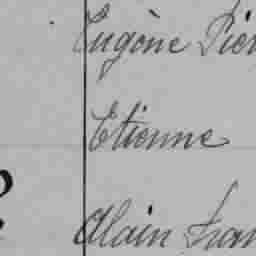 Eugène Pier
Etienne
Alain Fran